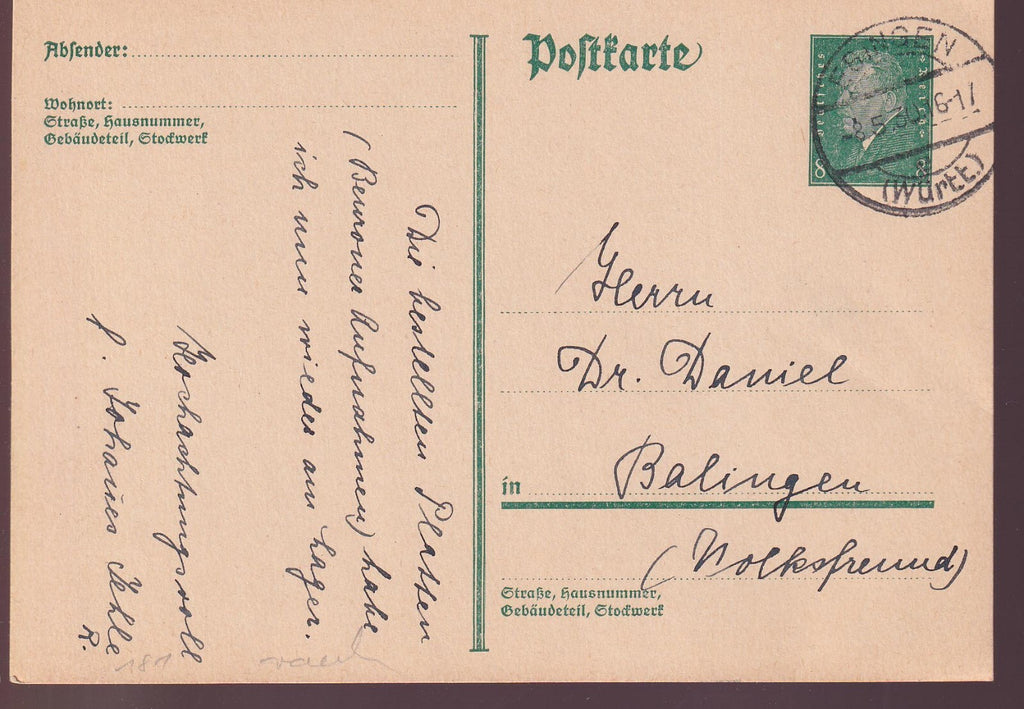 Absender:
Wohnort:
Straße, Hausnummer,
Gebäudeteil, Stockwerk
Die bestellten Platten
(Beuroner Aufnahmen) habe
ich nun wieder am Lager.
Hochachtungsvoll
f. Johannes Jehle
R.
181
Postkarte
Deutsches Reich
8 8
EBINGEN
-8.5.30.16-17
(Württ.)
Herrn
Dr. Daniel
in Balingen
(Volksfreund)
Straße, Hausnummer,
Gebäudeteil, Stockwerk